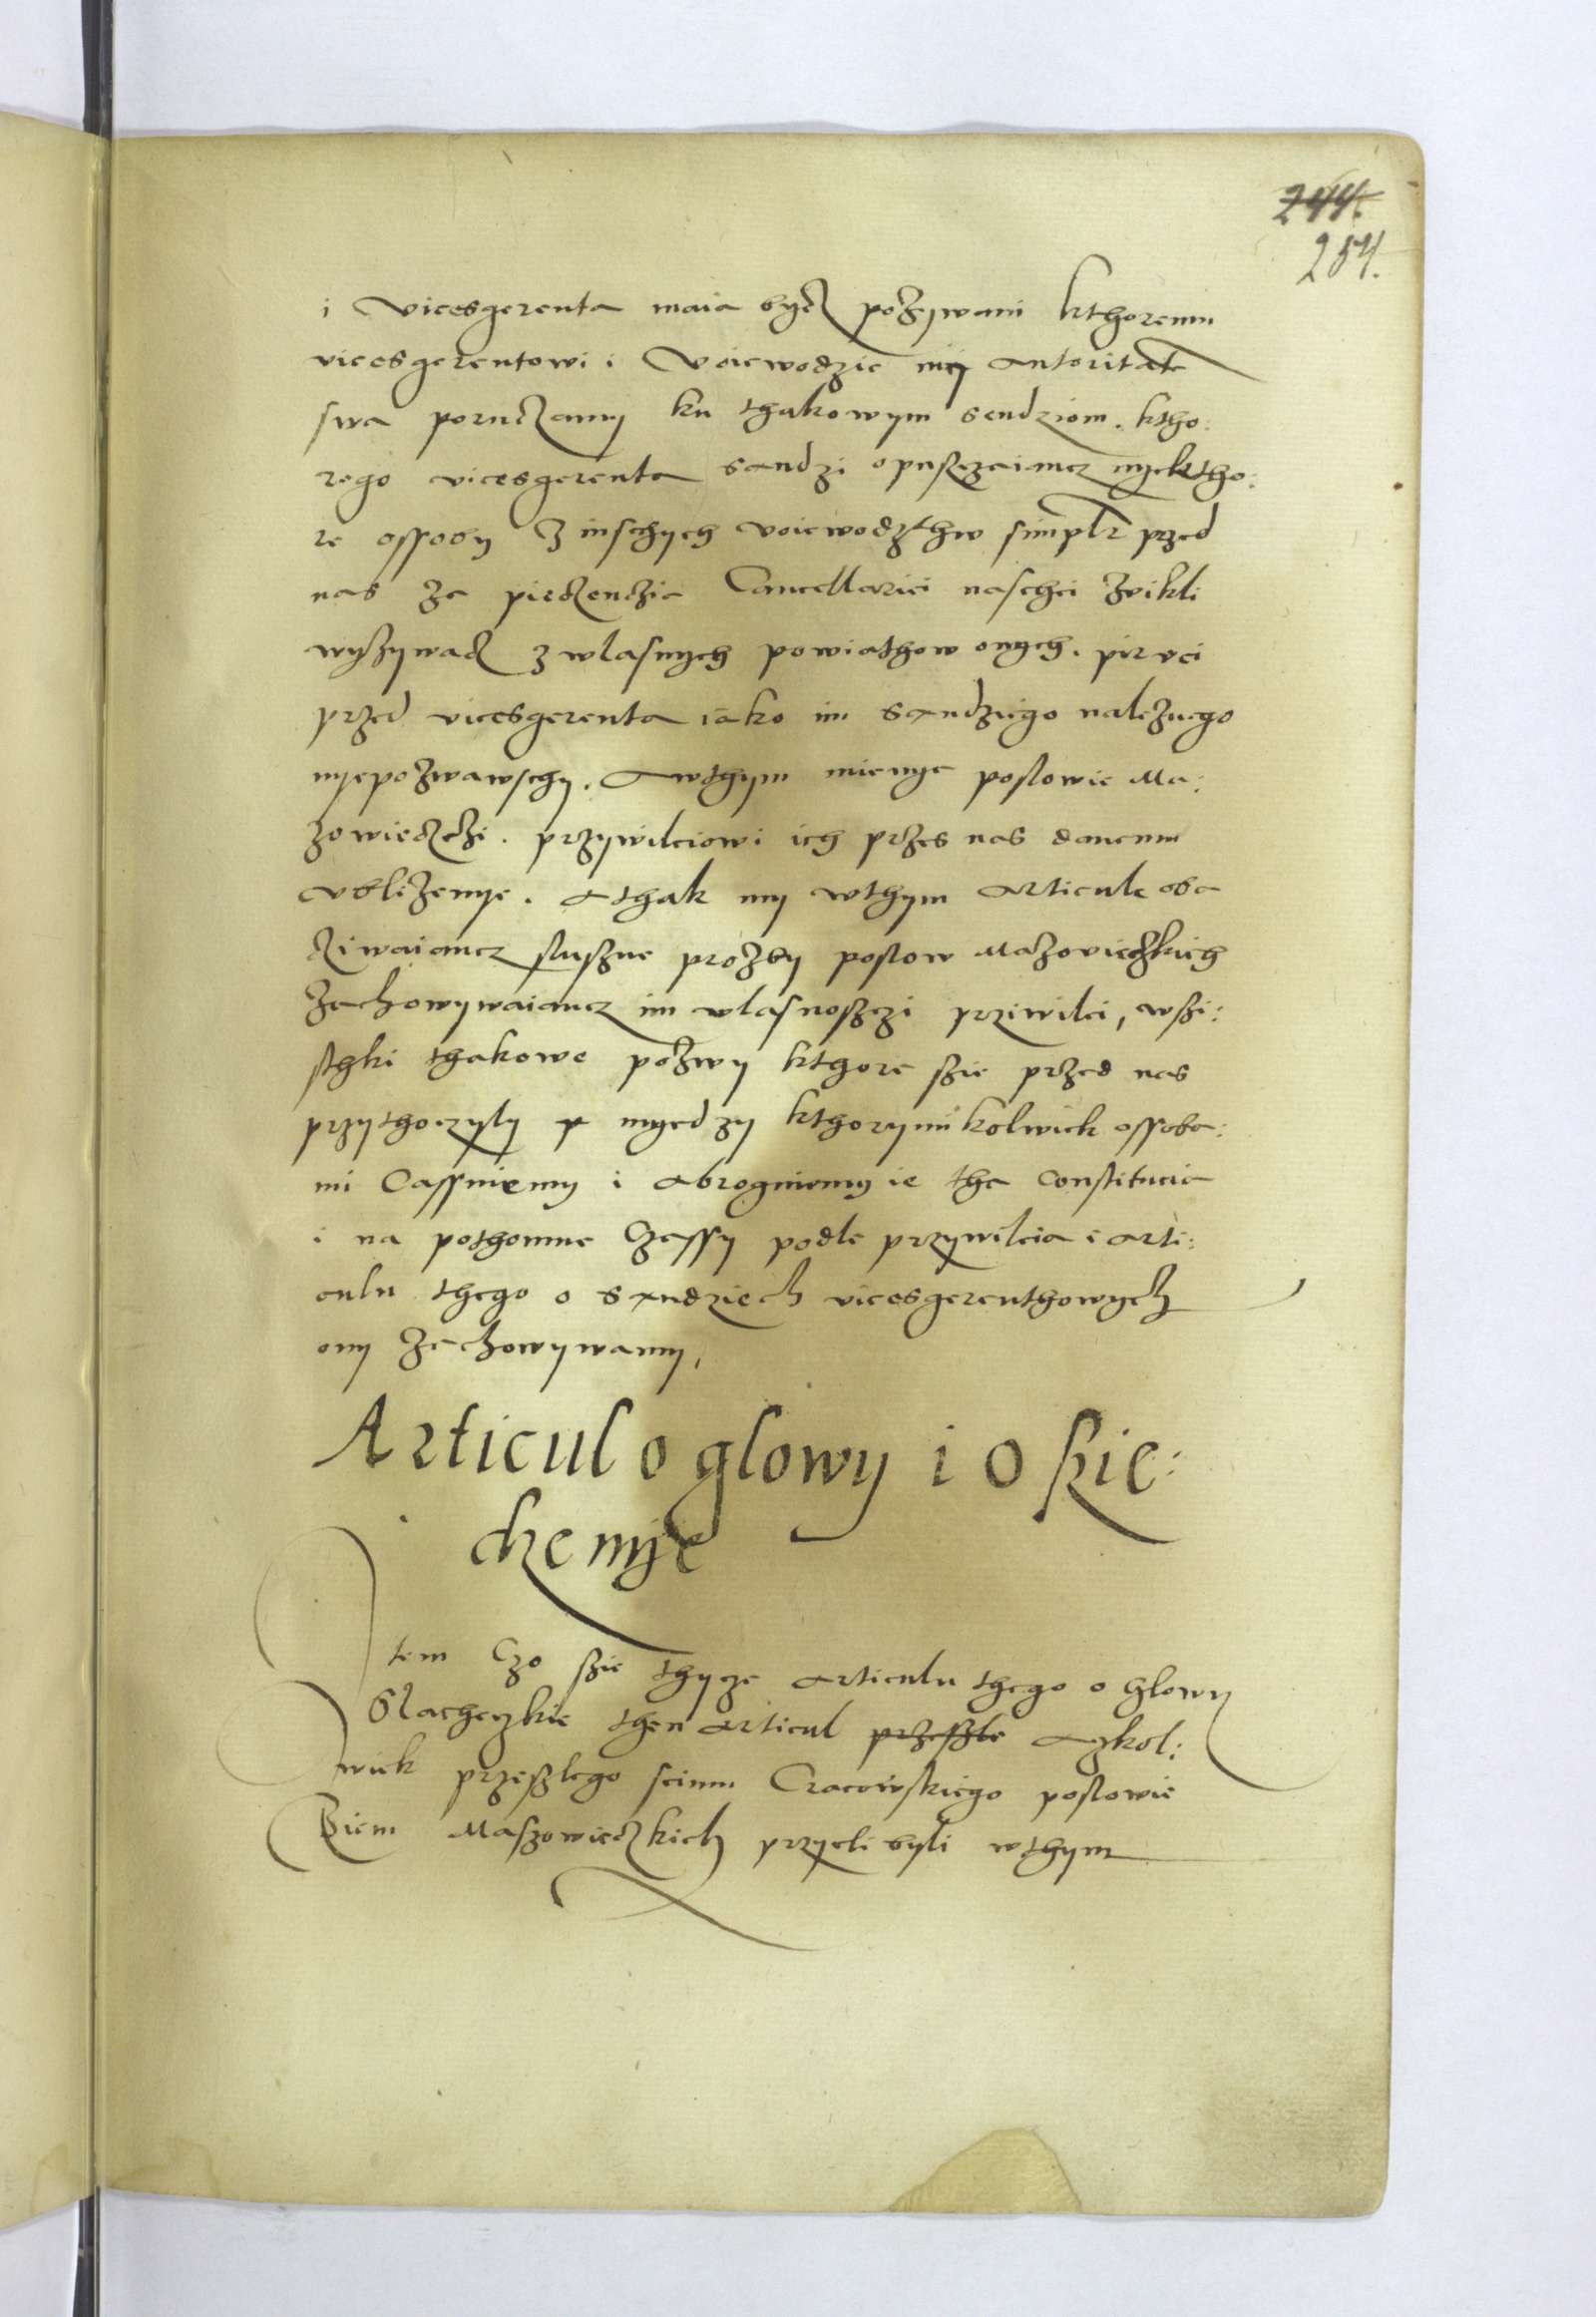 244.
254.
i vicesgerenta maia bycz pozywani kthoremu
vicesgerentowi i voiewodzie my autoritatẹ
swa poruczamy ku thakowym sendziom. ktho:
rego vicesgerenta sandzi opusczaiancz nyektho:
re ossoby z inschych voiewodzthw simplr przed
nas za pieczenczia Cancellariei naschei zwikli
wyzywacz z wlasnych powiathow onych. pirvei
przed vicesgerenta iako im sandziego naleznego
nyepozwawschy. A wthym mienye poslowie Ma:
zowieczczi. przywileiowi ich przes nas danemu
vblizenye. A thak my wthym articule oba
cziwaiancz slusne prozby poslow Mazovieczkich
zachowywaiancz im wlasnosczi priwilei, wszi:
sthki thakowe pozwy kthore szie przed nas
przythoczyly myedzy kthorymikolwiek ossoba:
mi Cassuiemy i abroguiemy ie tha Constitucia
i na pothomne Czassy podle przywileia i arti:
culu thego o sandziech vicesgerenthowych
ony zachowywamy,
Articul o glowy i o szie:
dzenye
Item Czo szie thycze articulu thego o Glowy
Slacheczkie then articul przeszle Aczkol:
wiek przeszlego seimu Cracowskiego poslowie
Ziem Maszowieczkich przyeli byli wthym